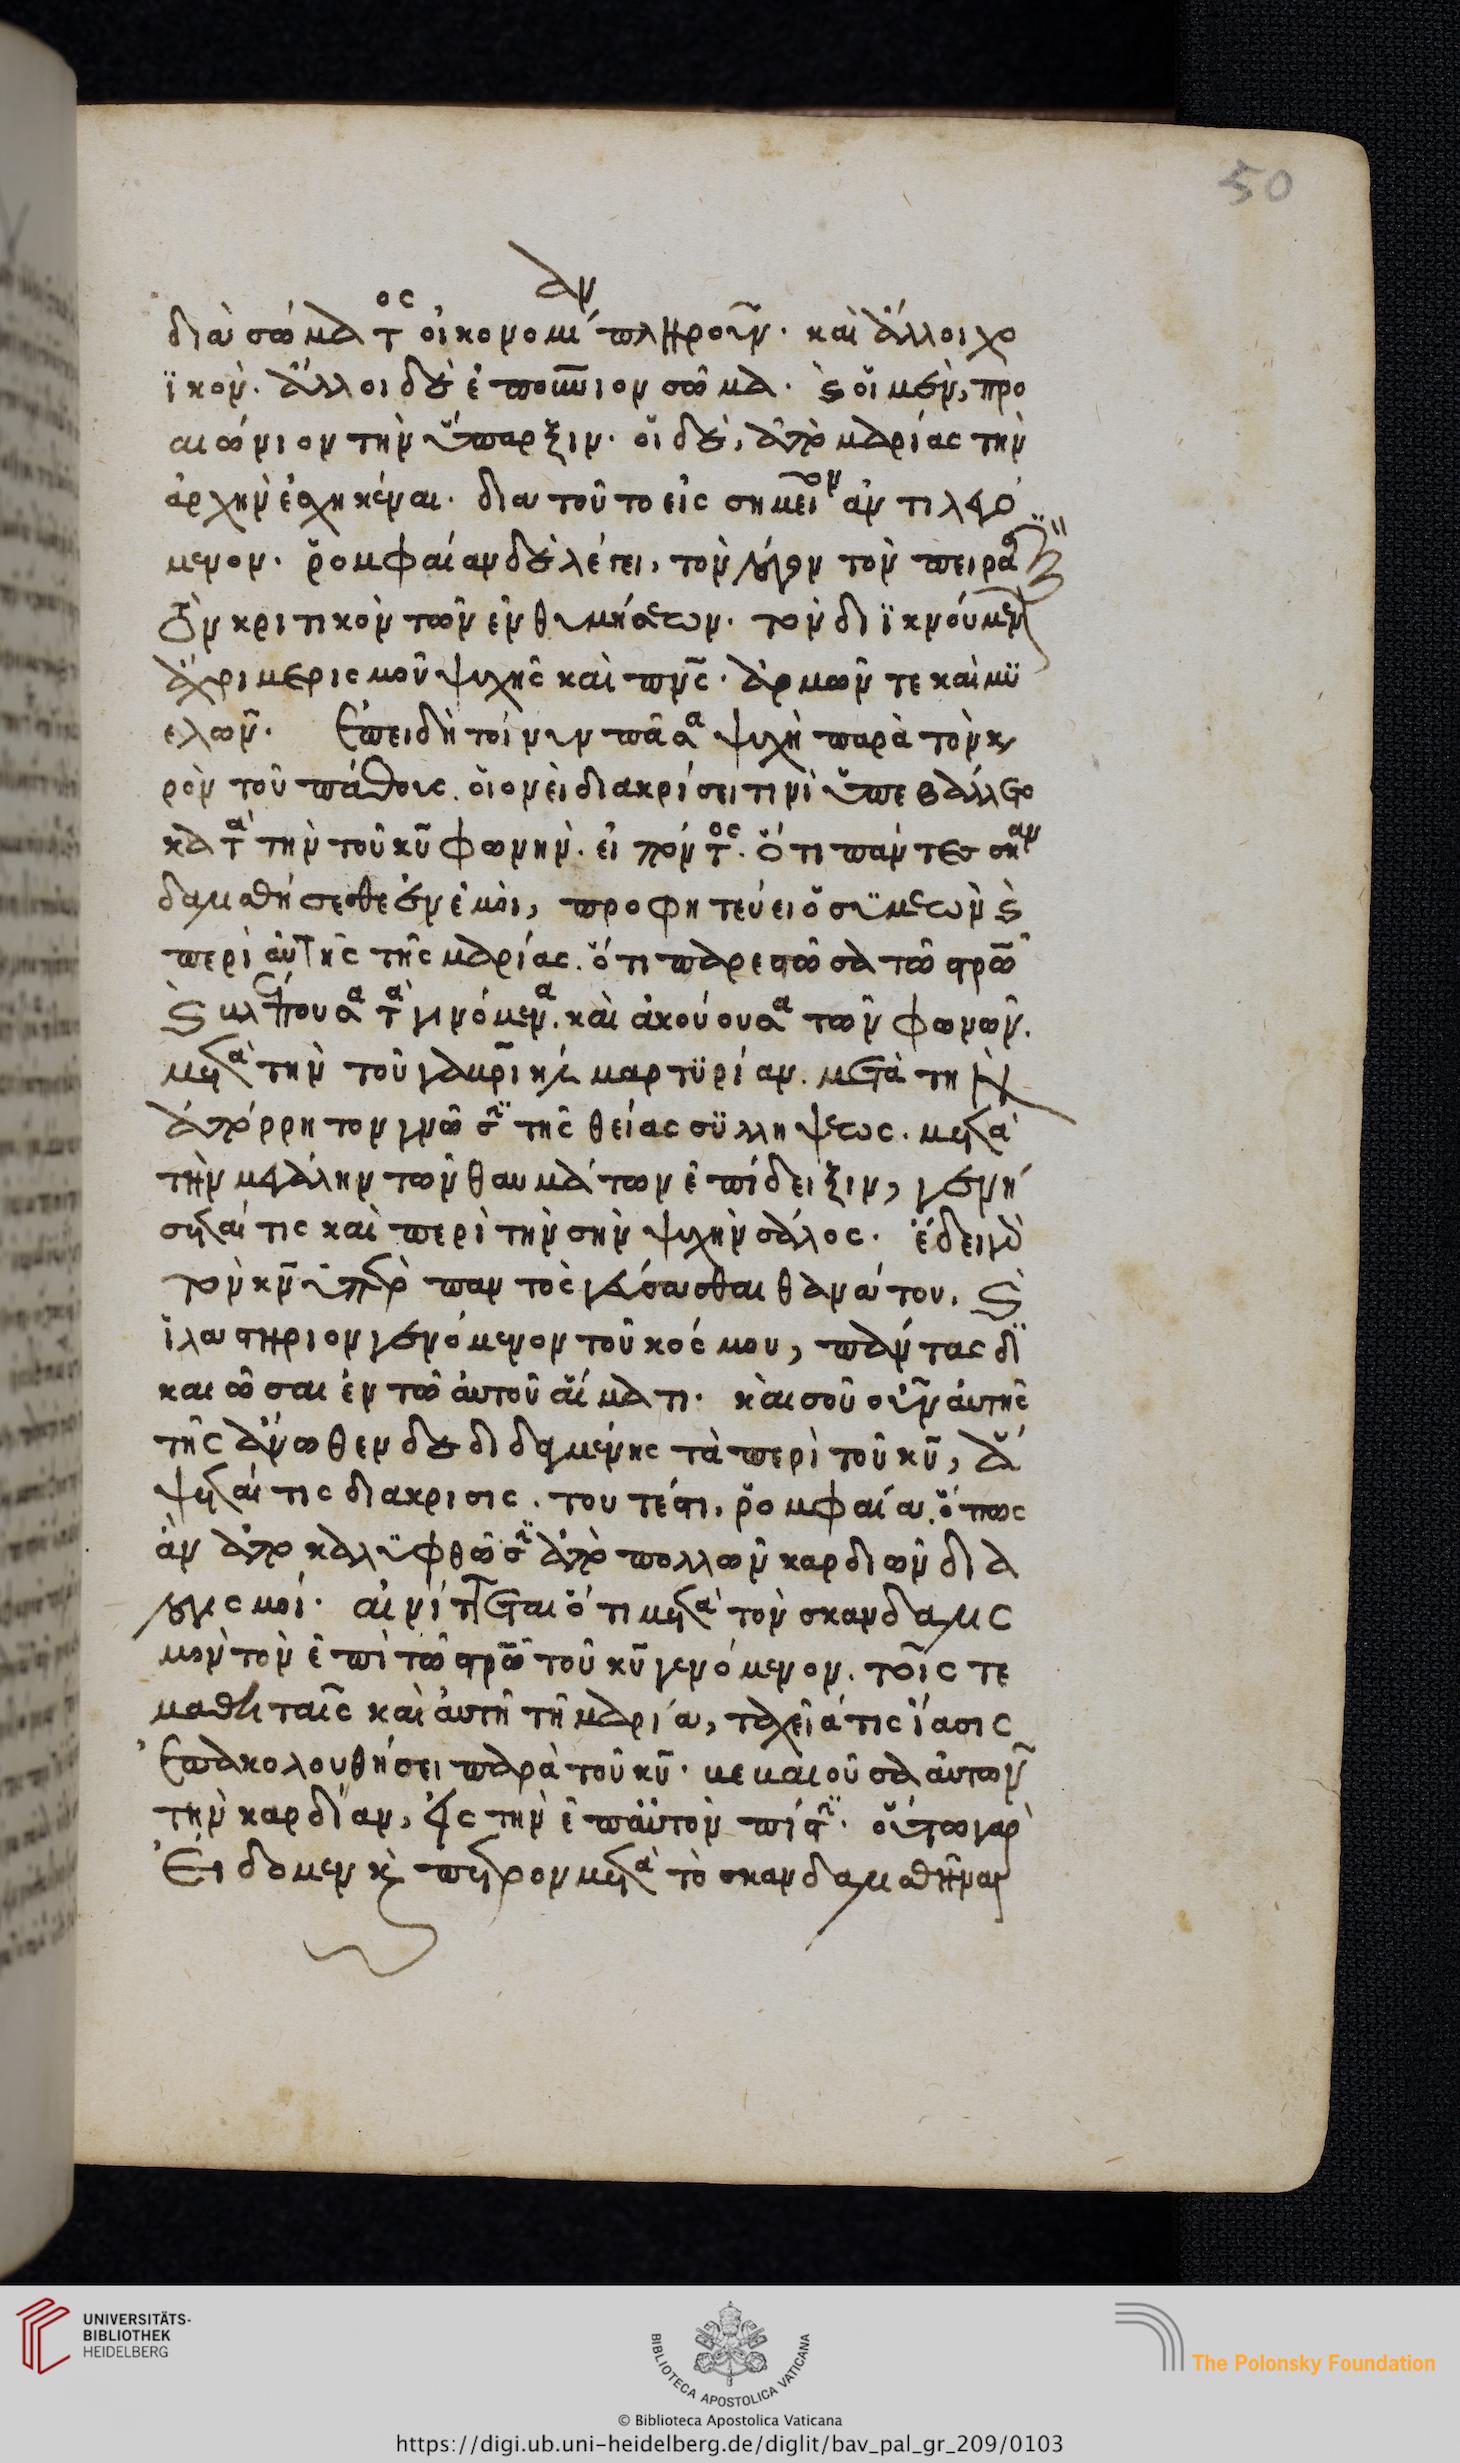 50
διὰ σώματος οἰκονομίαν πληροῦν· καὶ ἄλλοι χο
ϊκὸν· ἄλλοι δὲ ἐπουράνιον σῶμα· καὶ οἱ μὲν, προ
αιώνιον τὴν ὕπαρξιν· οἱ δὲ, ἀπὸ μαρίας τὴν
ἀρχὴν ἐσχηκέναι· διατοῦτο εἰς σημεῖον ἀντιλεγό
μενον· ῥομφαίαν δὲ λέγει, τὸν λόγον τὸν πειραστικὸν
κριτικὸν τῶν ἐνθυμήσεων· τὸν διϊκνούμενον
ἄχρι μερισμοῦ ψυχῆς καὶ πνς· ἁρμῶν τε καὶ μυ
ελῶν· Ἐπειδὴ τοίνυν πᾶσα ψυχὴ παρὰ τὸν και
ρὸν τοῦ πάθους. οἱονεὶ διακρίσει τινὶ ὑπεβάλλετο
κατὰ τὴν τοῦ κυ φωνὴν· εἰπόντος· ὅτι πάντες σκαν
δαλισθήσεσθε ἐν ἐμοὶ, προφητεύει ὁ συμεὼν καὶ
περὶ αὐτῆς τῆς μαρίας. ὅτι παρεστῶσα τῶ στρῶ
καὶ βλέπουσα τὰ γινόμενα. καὶ ἀκούουσα τῶν φωνῶν.
μετὰ τὴν τοῦ γαβριὴλ μαρτυρίαν. μετὰ τὴν
ἀπόρρητον γνῶσιν τῆς θείας συλλήψεως. μετὰ
τὴν μεγάλην τῶν θαυμάτων ἐπίδειξιν, γενή
σεταί τις καὶ περὶ τὴν σὴν ψυχὴν σάλος. ἔδει γὰρ
τὸν κν ὑπὲρ παντὸς γεύσασθαι θανάτου. καὶ
ἱλαστήριον γενόμενον τοῦ κόσμου, πάντας δι
καιῶσαι ἐν τῶ αὐτοῦ αἵματι. καὶ σοῦ οὖν αὐτῆς
τῆς ἄνωθεν δεδιδαγμένης τὰ περὶ τοῦ κυ, ἅ
ψεταί τις διάκρισις. τουτέστι, ῥομφαία. ὅπως
ἂν ἀποκαλυφθῶσιν ἀπὸ πολλῶν καρδιῶν δια
λογισμοί. αἰνίττεται ὅτι μετὰ τὸν σκανδαλισ
μὸν τὸν ἐπὶ τῶ στρῶ τοῦ κυ γενόμενον. τοῖς τε
μαθηταῖς καὶ αὐτῆ τῆ μαρία, ταχεῖά τις ἴασις
Ἐπακολουθήσει παρὰ τοῦ κυ. βεβαιοῦσα αὐτῶν
τὴν καρδίαν, εἰς τὴν ἐπ αὐτὸν πίστιν· οὕτω γὰρ
Εἴδομεν καὶ πέτρον μετὰ τὸ σκανδαλισθῆναι
UNIVERSITÄTS-
BIBLIOTHEK
HEIDELBERG
BIBLIOTECA APOSTOLICA VATICANA
The Polonsky Foundation
© Biblioteca Apostolica Vaticana
https://digi.ub.uni-heidelberg.de/diglit/bav_pal_gr_209/0103